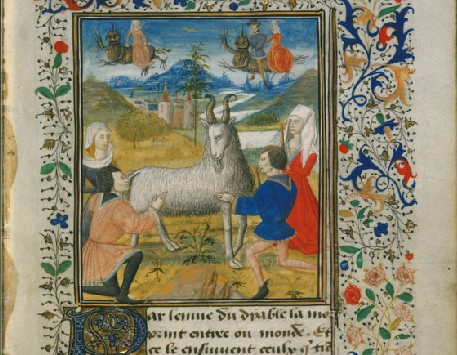 Par lenuie du dyable la mo
print entree ou monde. Et
ce le ensuiuent ceulx